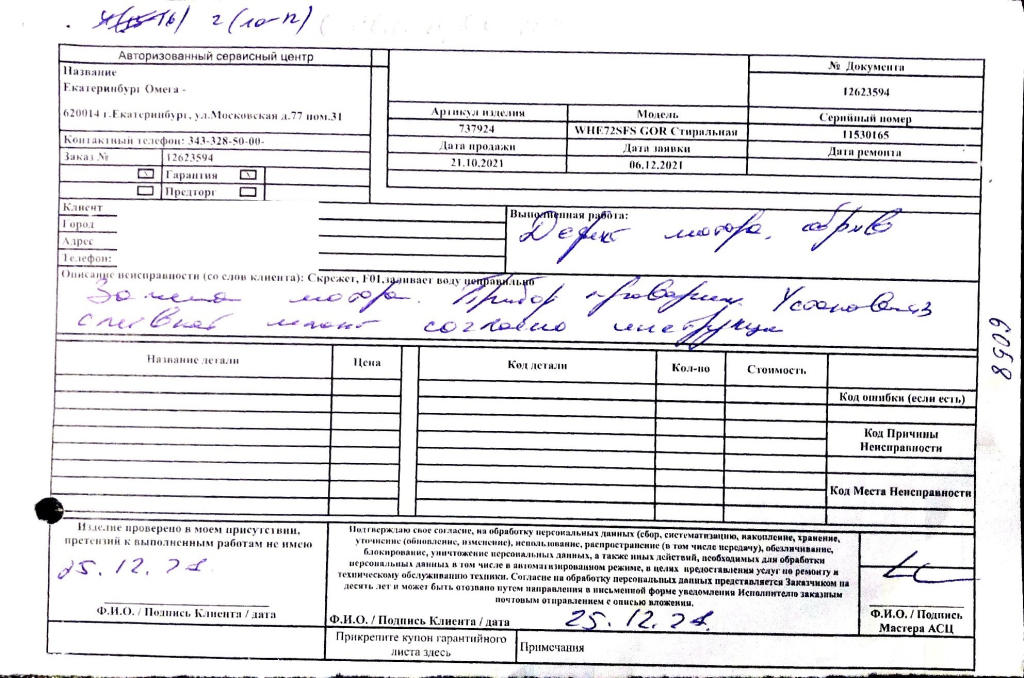 2 (10-12)
Авторизованный сервисный центр
Название
Екатеринбург Омега -
620014 г.Екатеринбург, ул.Московская д.77 пом.31
Контактный телефон: 343-328-50-00-
Заказ № 12623594
Гарантия
Предторг
№ Документа
12623594
Артикул изделия Модель Серийный номер
737924 WHE72SFS GOR Стиральная 11530165
Дата продажи Дата заявки Дата ремонта
21.10.2021 06.12.2021
Клиент
Город
Адрес
Телефон:
Выполненная работа:
Дефект мотора, обрыв
Описание неисправности (со слов клиента): Скрежет, F01,заливает воду неправильно
Замена мотора. Прибор проверен. Установлен
сливной шланг согласно инструкции
8909
Название детали Цена Код детали Кол-во Стоимость
Код ошибки (если есть)
Код Причины
Неисправности
Код Места Неисправности
Изделие проверено в моем присутствии,
претензий к выполненным работам не имею
25.12.21
Ф.И.О. / Подпись Клиента / дата
Подтверждаю свое согласие, на обработку персональных данных (сбор, систематизацию, накопление, хранение,
уточнение (обновление, изменение), использование, распространие (в том числе передачу), обезличивание,
блокирование, уничтожение персональных данных, а также иных действий, необходимых для обработки
персональных данных в том числе в автоматизированном режиме, в целях предоставления услуг по ремонту и
техническому обслуживанию техники. Согласие на обработку персональных данных представляется Заказчиком на
десять лет и может быть отозвано путем направления в письменной форме уведомления Исполнителю заказным
почтовым отправлением с описью вложения.
Ф.И.О. / Подпись Клиента / дата 25.12.21.
Ф.И.О. / Подпись
Мастера АСЦ
Прикрепите купон гарантийного
листа здесь
Примечания